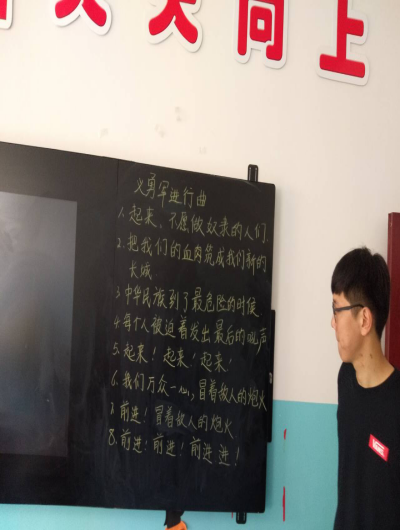 天天向上
义勇军进行曲
1.起来,不愿做奴隶的人们
2.把我们的血肉筑成我们新的
长城
3.中华民族到了最危险的时候
4.每个人被迫着发出最后的吼声
5.起来!起来!起来!
6.我们万众一心,冒着敌人的炮火
7.前进!冒着敌人的炮火
8.前进!前进!前进进!